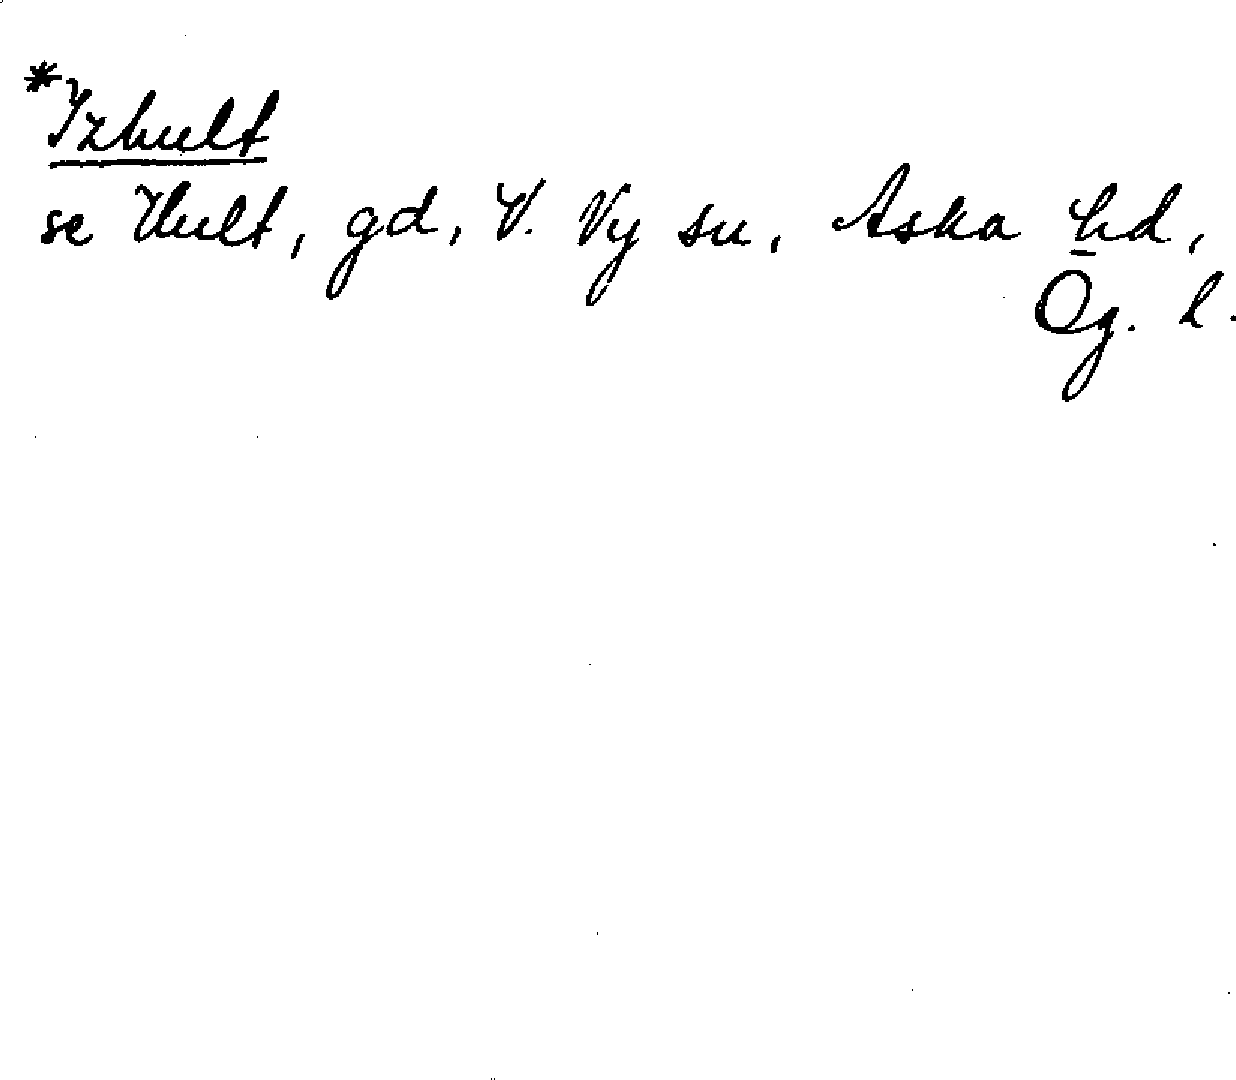 *Izhult
se Hult, gd, V. Ny sn, Aska hd,
Ög. l.